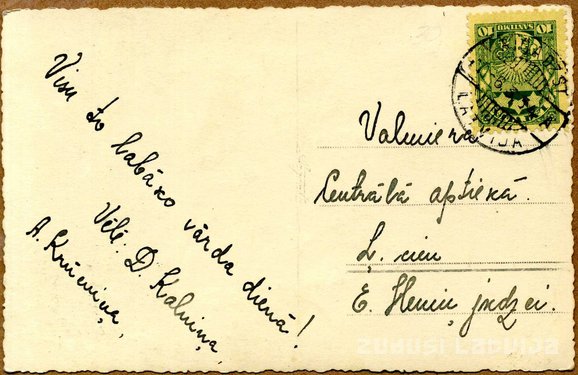 Visu to labāko vārda dienā!
Vēlē: D Kalniņa,
A. Krūmiņa,
Valmiera
Centrālā aptiekā.
Ļ. cien
E.
10 SANTIMU 10
LATVIJA
ZUDUSĪ LATVIJA